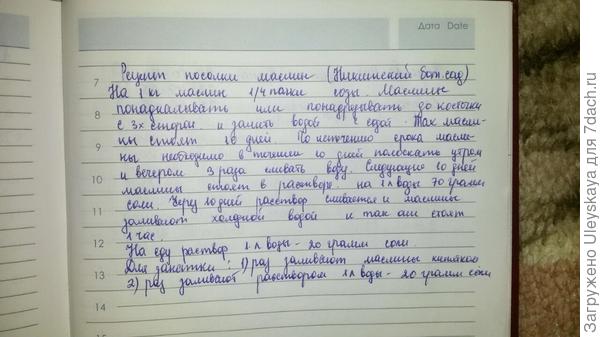 Дата Date
Рецепт посолки маслин (Никитинский бот.сад)
7
На 1 кг маслин 1/4 пачки соды. Маслины
понадкалывать или понадрезывать до косточки
8
с 3х сторон и залить водой с содой. Так масли-
ны стоят 10 дней. По истечению срока масли-
9
ны необходимо в течении 10 дней полоскать утром
и вечером 2 раза сливать воду. Следующие 10 дней
10
маслины стоят в растворе на 1 л воды 70 грамм
соли. Через 10 дней раствор сливается и маслины
11
заливают холодной водой и так они стоят
1 час.
12
На еду раствор 1 л воды - 20 грамм соли.
Для закатки: 1) раз заливают маслины кипятком
13
2) раз заливают раствором 1л воды - 20 грамм соли
14
Загружено Uleyskaya для 7dach.ru